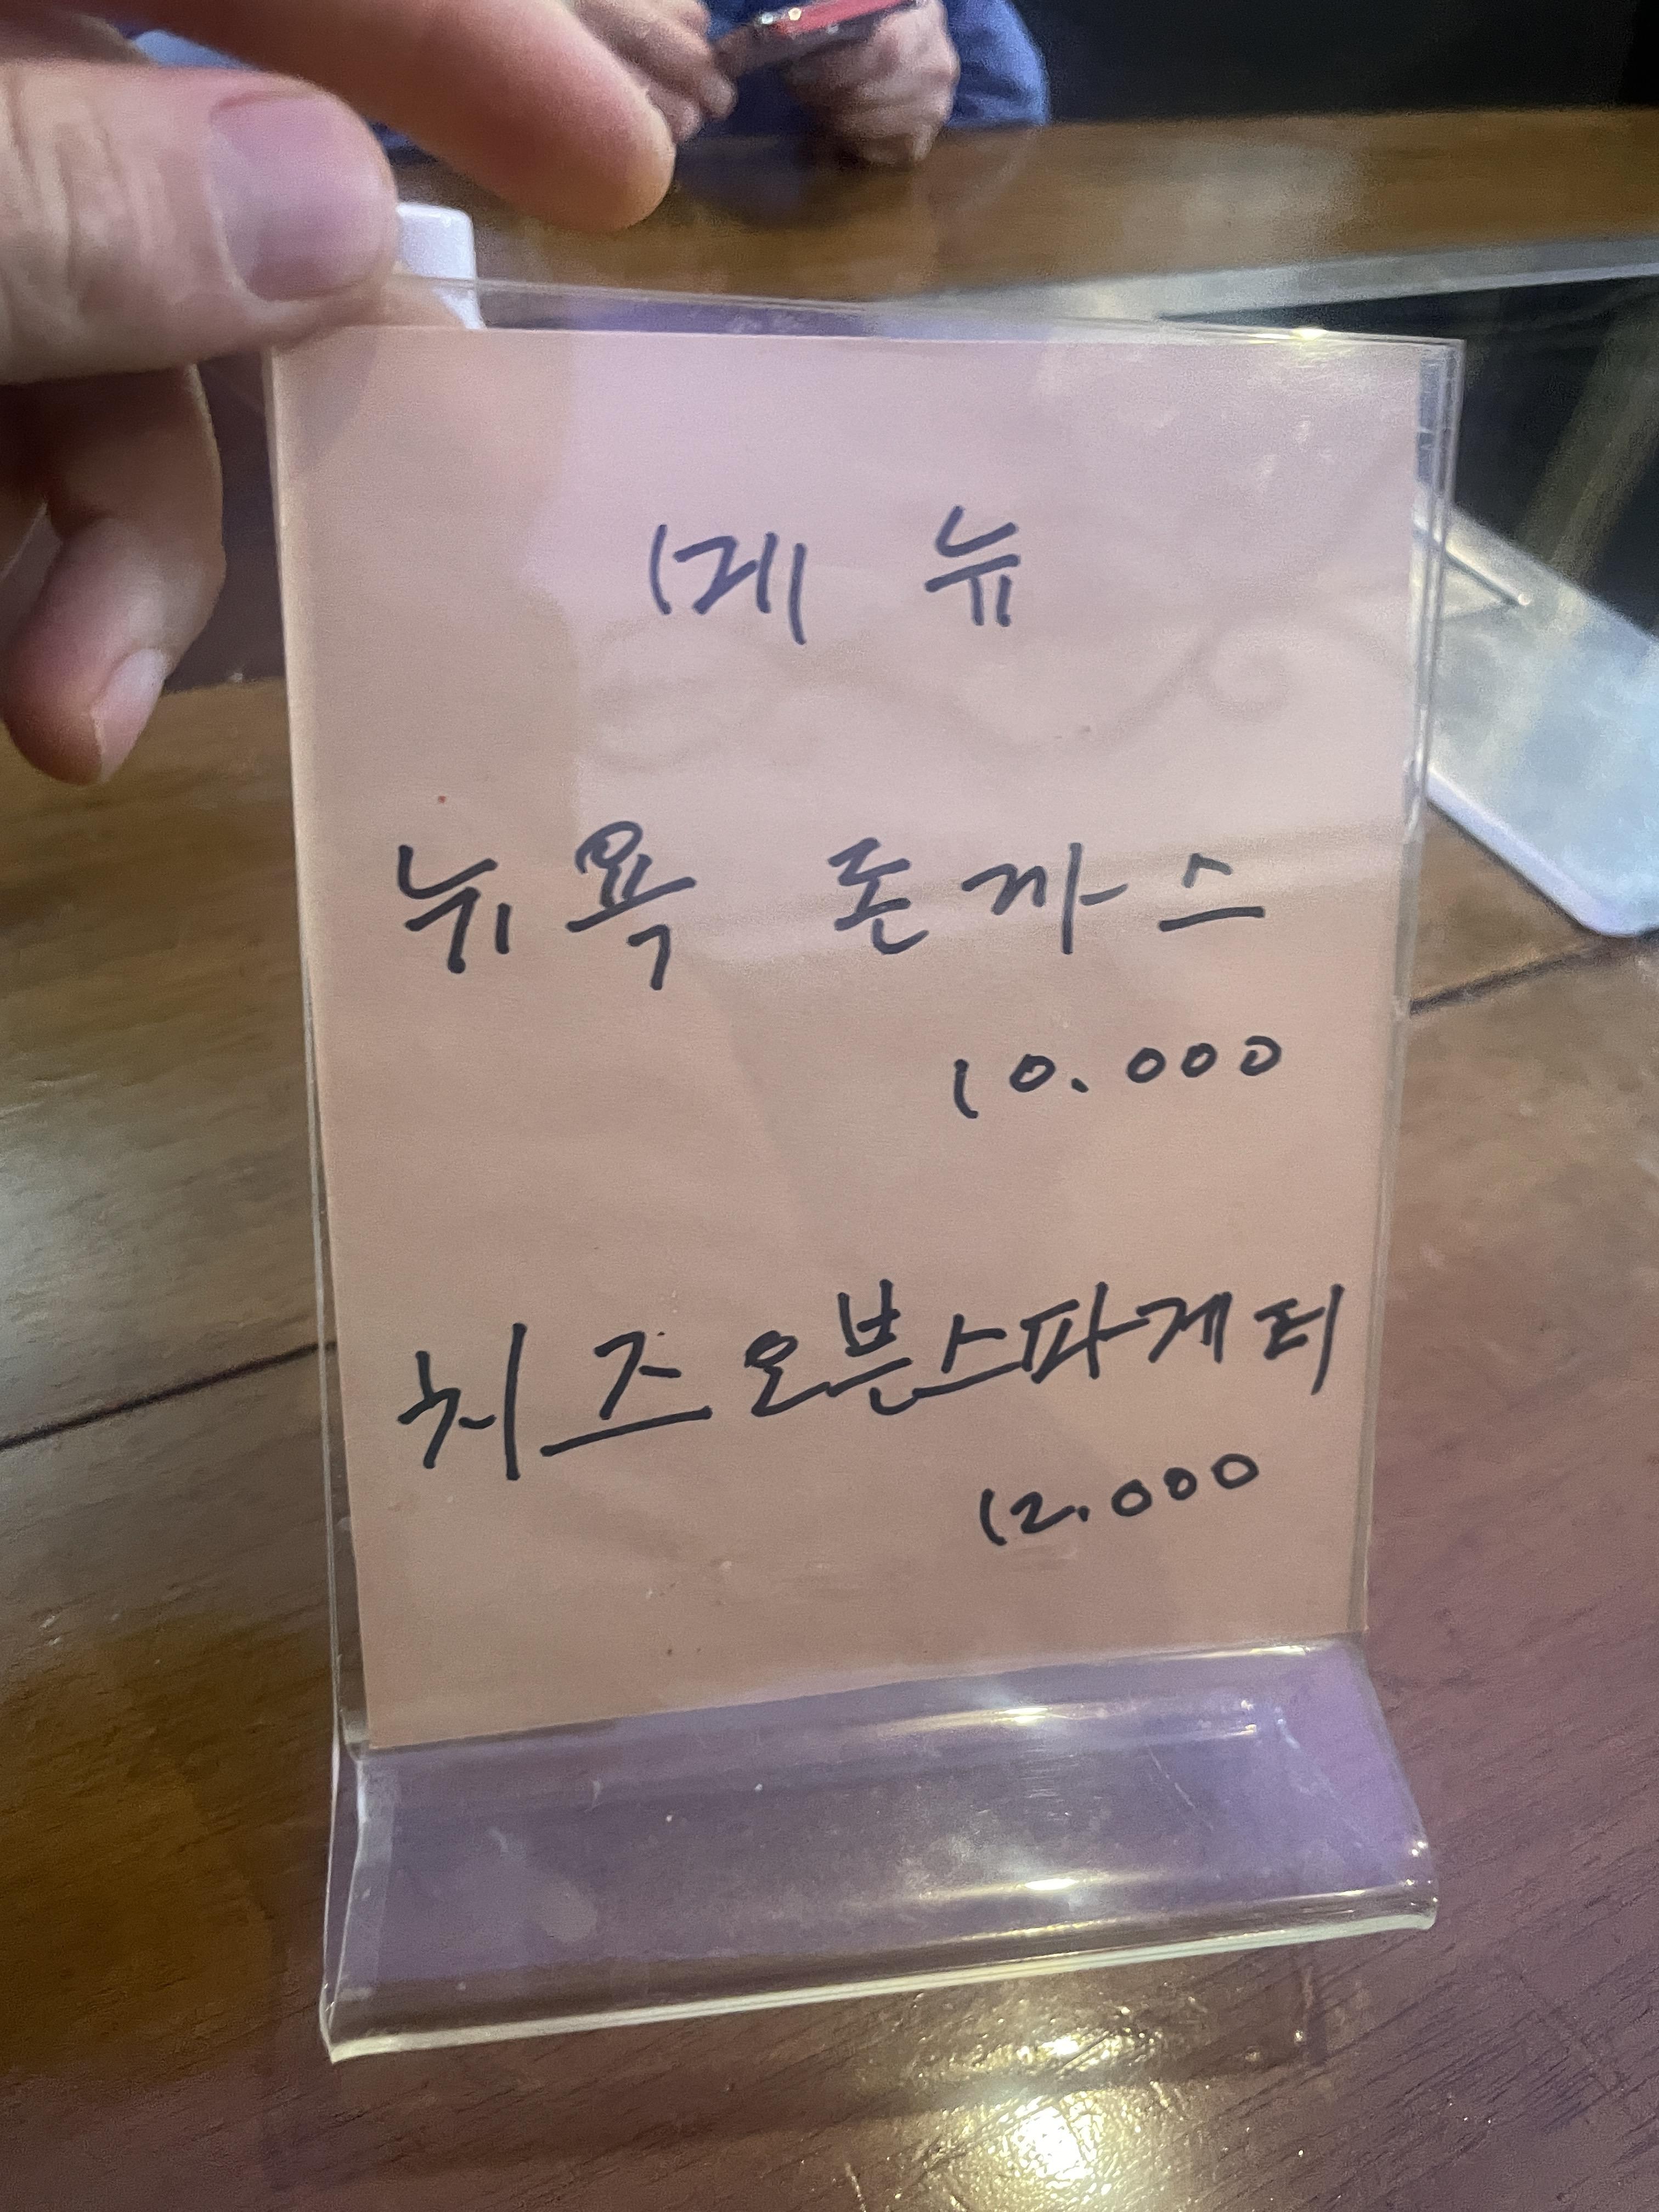 메뉴
뉴욕 돈까스
10.000
치즈오븐스파게티
12.000